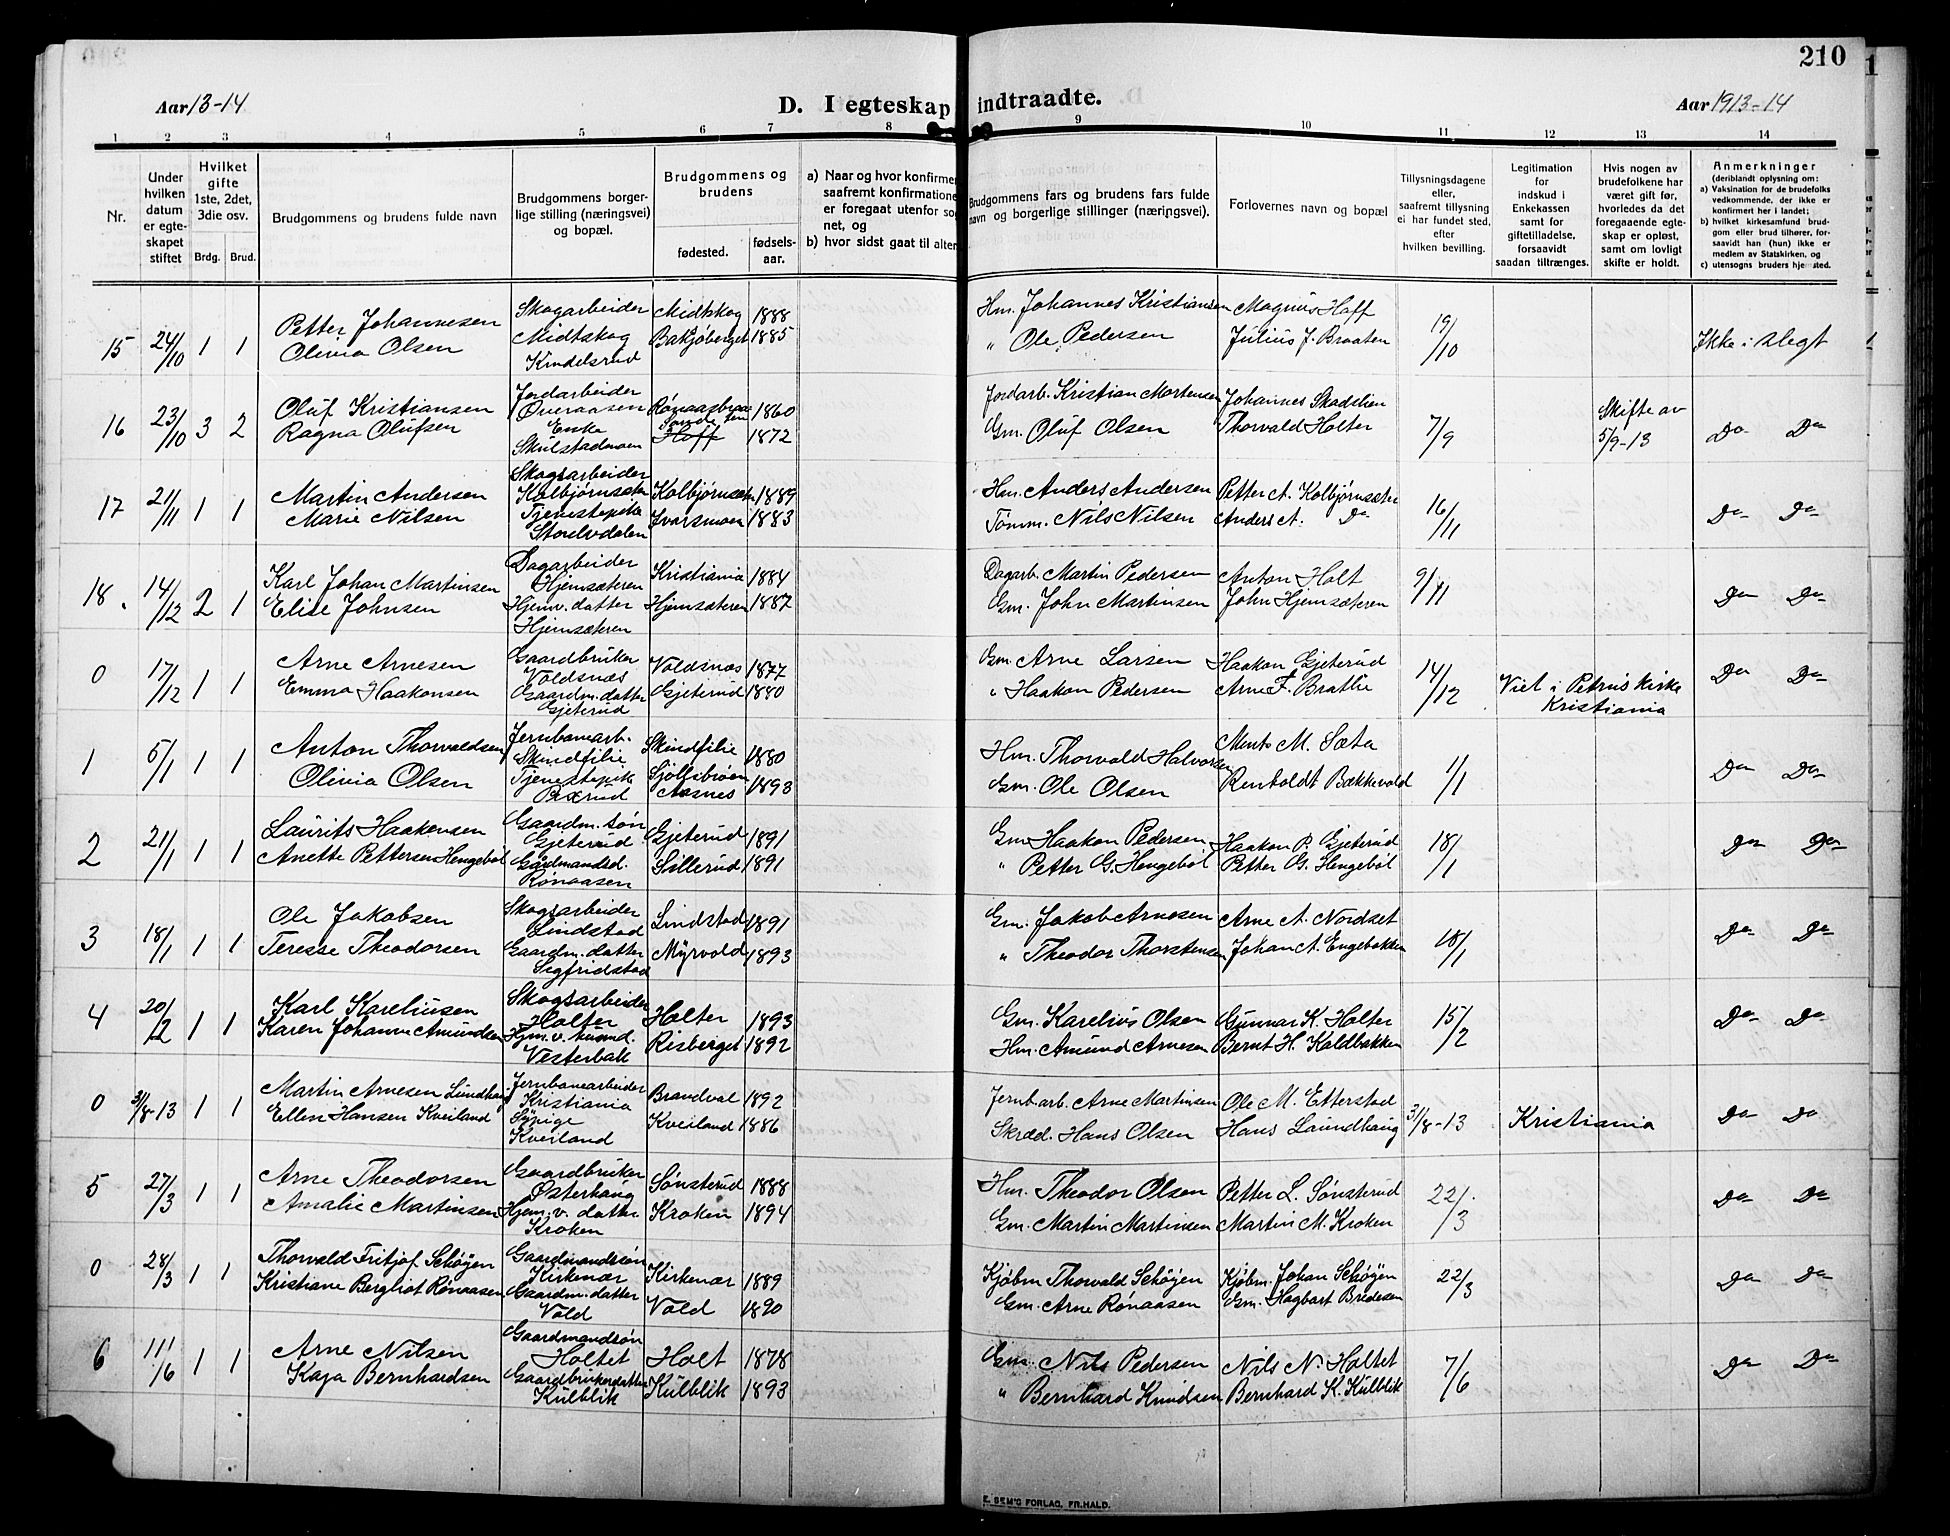 210
Aar 13-14
D. I egteskap indtraadte.
Aar 1913-14
1 2 3 4 5 6 7 8 9 10 11 12 13 14
Nr.
Under hvilken datum er egteskapet stiftet
Hvilket gifte 1ste, 2det, 3die osv.
Brdg. Brud.
Brudgommens og brudens fulde navn
Brudgommens borgerlige stilling (næringsvei) og bopæl.
Brudgommens og brudens
fødested.
fødselsaar.
a) Naar og hvor konfirmer
saafremt konfirmatione
er foregaat utenfor so
net, og
b) hvor sidst gaat til alter
Brudgommens fars og brudens fars fulde navn og borgerlige stillinger (næringsvei).
Forlovernes navn og bopæl
Tillysningsdagene eller, saafremt tillysning ei har fundet sted, efter hvilken bevilling.
Legitimation for indskud i Enkekassen samt for giftetilladelse, forsaavidt saadan tiltrænges.
Hvis nogen av brudefolkene har været gift før, hvorledes da det foregaaende egteskap er opløst, samt om lovligt skifte er holdt.
Anmerkninger
(deriblandt oplysning om:
a) Vaksination for de brudefolks vedkommende, der ikke er konfirmert her i landet;
b) hvilket kirkesamfund brudgom eller brud tilhører, forsaavidt han (hun) ikke er medlem av Statskirken, og
c) utensogns bruders hjemsted.
15 24/10 1 1 Petter Johannesen Skogarbeider Midtskog Midtskog 1888 Hm. Johannes Kristiansen Magnus Hoff 19/10 Ikke i slegt
Olivia Olsen Kindelsrud Bakjøberget 1885 " Ole Pedersen Julius J. Braaten
16 23/10 3 2 Oluf Kristiansen Jordarbeider Overaasen Rønaasbraa 1860 Jordarb. Kristian Mortensen Johannes Skadelien 7/9 Skifte av 5/9-13 Do Do
Ragna Olufsen Enke Skulstadmoen Hoff 1872 Gm. Oluf Olsen Thorvald Holter
17 21/11 1 1 Martin Andersen Skogsarbeider Kolbjørnsæter Kolbjørnsæter 1889 Hm. Anders Andersen Petter A. Kolbjørnsætre 16/11 Do Do
Marie Nilsen Tjenestepike Storelvdalen Ivarsmoen 1883 Tømm. Nils Nilsen Anders A. Do
18. 14/12 2 1 Karl Johan Martinsen Dagarbeider Hjemsæteren Kristiania 1884 Dagarb. Martin Pedersen Anton Holt 9/11 Do Do
Elise Johnsen Hjemv. datter Hjemsæteren Hjemsæteren 1887 Gm. John Martinsen John Hjemsæteren
0 17/12 1 1 Arne Arnesen Gaardbruker Voldsnæs Voldsnæs 1877 Gm. Arne Larsen Haakon Gjeterud 14/12 Viet i Petrus kirke Kristiania Do Do
Emma Haakensen Gaardm. datter Gjeterud Gjeterud 1880 " Haakon Pedersen Arne F. Bratlie
1 5/1 1 1 Anton Thorvaldsen Jernbanearb. Skindfilie Skindfilie 1880 Hm. Thorvald Halvorsen Mento M. Sæta 1/1 Do Do
Olivia Olsen Tjenestepik Bærud Sjølisbroen Aasnes 1893 Gm. Ole Olsen Renholdt Bækkevold
2 21/1 1 1 Laurits Haakensen Gaardm. søn Gjeterud Gjeterud 1891 Gm Haakon Pedersen Haakon P. Gjeterud 18/1 Do Do
Anette Pettersen Hengebøl Gårdmandsd. Rønaasen Sillerud 1891 " Petter G. Hengebøl Petter G. Hengebøl
3 18/1 1 1 Ole Jakobsen Skogsarbeider Lindstad Lindstad 1891 Gm. Jakob Arnesen Arne A. Nordset 18/1 Do Do
Teresse Theodorsen Gaardm. datter Sigfridstad Myrvold 1893 " Theodor Thorstensen Johan A. Engebakken
4 20/2 1 1 Karl Kareliusen Skogsarbeider Holter Holter 1893 Gm. Karelius Olsen Gunnar K. Holter 15/2 Do Do
Karen Johanne Amundsen Hjm. v. Amund. Vesterbak Risberget 1892 Hm. Amund Arnesen Bernt H. Kaldbakken
0 31/8-13 1 1 Martin Arnesen Lundhaug Jernbanearbeider Kristiania Brandval 1892 Jernb. arb. Arne Martinsen Ole M. Etterstad 31/8-13 Kristiania Do Do
Ellen Hansen Kveiland Syerige Kveiland Kveiland 1886 Skræd. Hans Olsen Hans Laundhaug
5 27/3 1 1 Arne Theodorsen Gaardbruker Østerhaug Sønsterud 1888 Hm. Theodor Olsen Petter L. Sønsterud 22/3 Do Do
Amalie Martinsen Hjem. v. datter Kroken Kroken 1894 Gm. Martin Martinsen Martin M. Kroken
0 28/3 1 1 Thorvald Fritjof Schøyen Gaardmandssøn Kirkenær Kirkenær 1889 Kjøbm Thorvald Schøyen Kjøbm. Johan Schøyen 22/3 Do Do
Kristiane Bergliot Rønaasen Gaardm. datter Vold Vold 1890 Gm. Arne Rønaasen Gm. Hagbart Bredesen
6 11/6 1 1 Arne Nilsen Gaardmandsøn Holtet Holt 1878 Gm. Nils Pedersen Nils N. Holtet 7/6 Do Do
Kaja Bernhardsen Gaardbrukerdatter Kulblik Kulblik 1893 " Bernhard Knudsen Bernhard K. Kulblik
E. SEM'S FORLAG, FR.HALD.